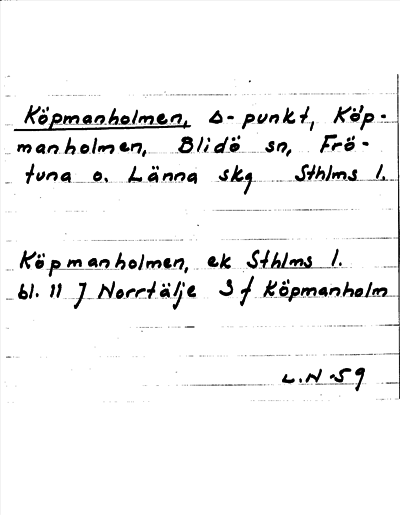 Köpmanholmen, Δ-punkt, Köp-
manholmen, Blidö sn, Frö-
tuna o. Länna skg Sthlms l.
Köpmanholmen, ek Sthlms l.
bl. 11 J Norrtälje S f Köpmanholm
L.N -59